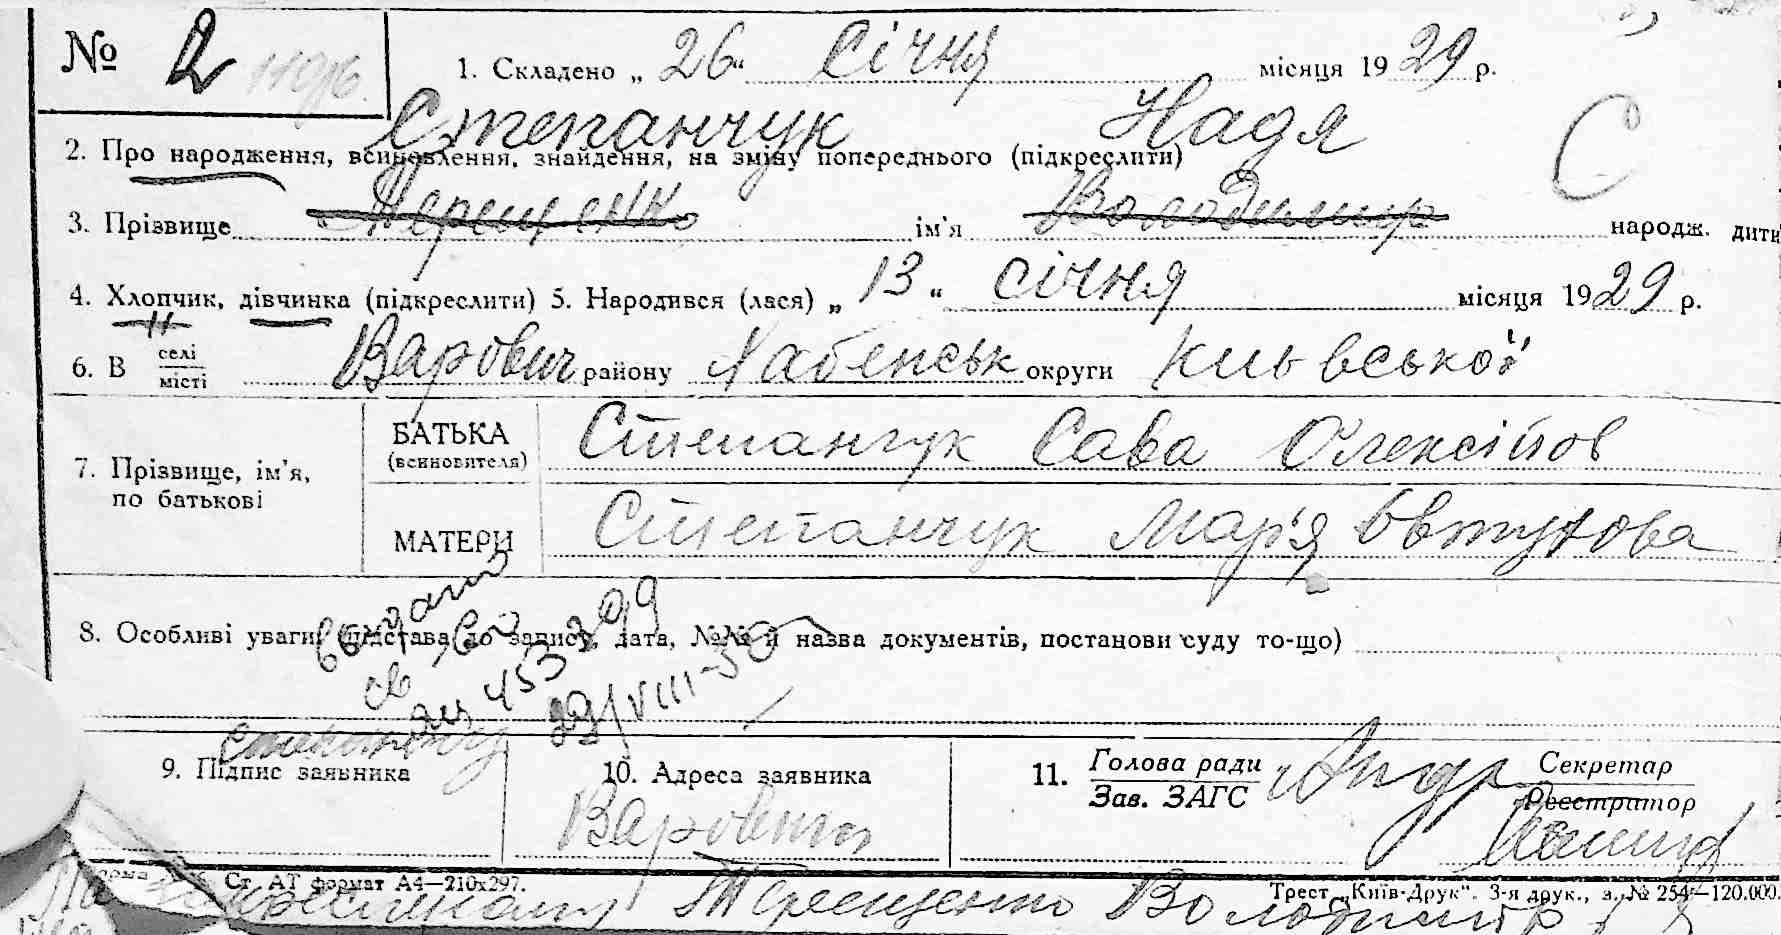 № 2
1. Складено „ 26 “ Січня місяця 1929 р.
Степанчук Надя
2. Про народження, всиновлення, знайдення, на зміну попереднього (підкреслити)
3. Прізвище Терещенко ім'я Володимир народж. дити
4. Хлопчик, дівчинка (підкреслити) 5. Народився (лася) „ 13 “ січня місяця 1929 р.
6. В селі Варович району Хабенськ округи Киьвської
місті
С
7. Прізвище, ім'я,
по батькові
БАТЬКА Степанчук Сава Олексійов
(всиновителя)
МАТЕРИ Степанчук Мар'я Овтухова
8. Особливі уваги (підстава до запису, дата, №№ й назва документів, постанови суду то-що)
выдано
св-во
453299
29/VIII-50
9. Підпис заявника
10. Адреса заявника
Варовичи
11. Голова ради
Зав. ЗАГС
Секретар
Реєстратор
Ст. АТ формат А4—210х297.
Трест „Київ-Друк“. 3-я друк., з. № 254—120.000.
Терещенко Володимир